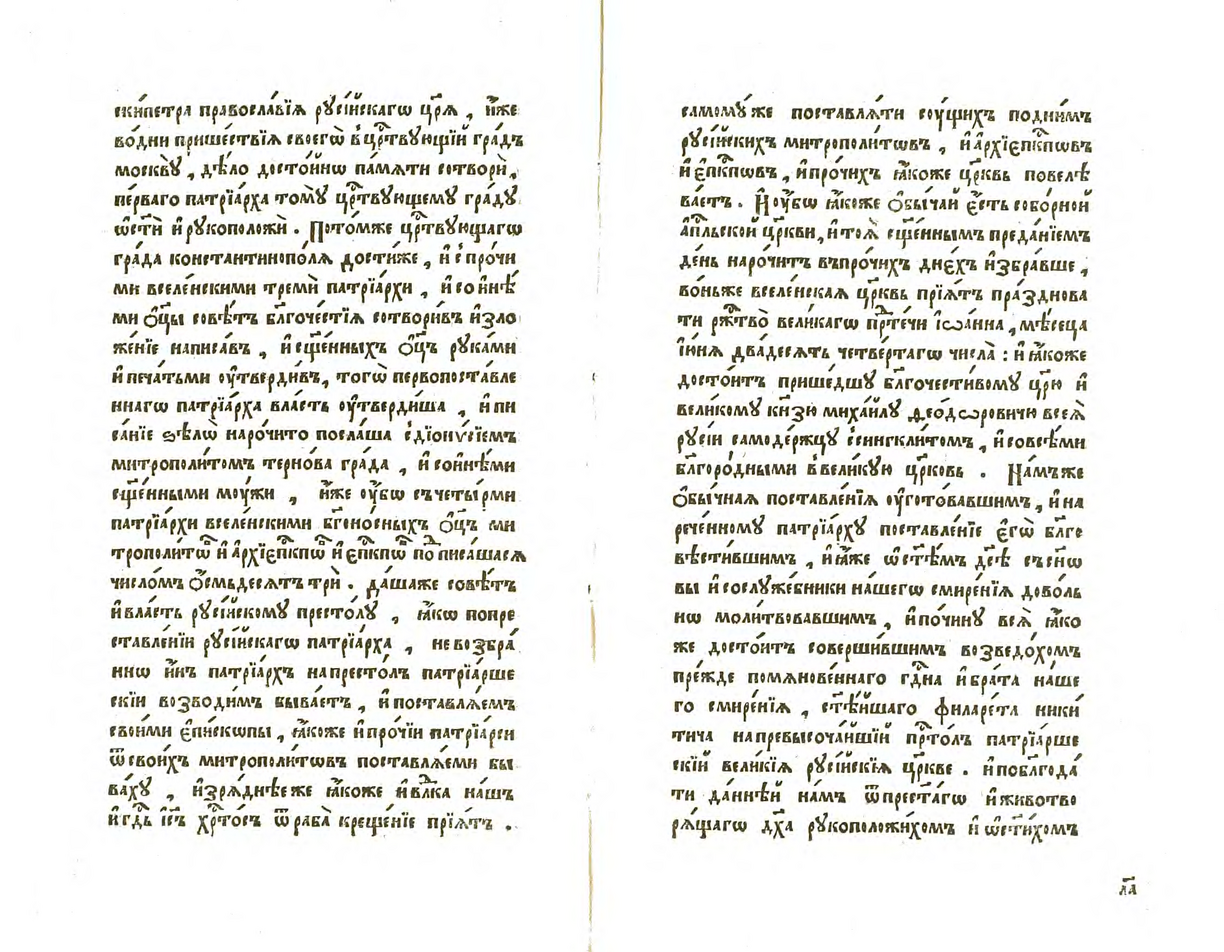 ски́петра правосла́вїѧ рꙋсі́йскагѡ црѧ̀ , и҆́же
во́дни прише́ствїѧ своегѡ̀ в҆црⷭ҇твующїй гра́дъ
москвꙋ̀ , дѣ́ло досто́йнѡ па́мѧти сотворѝ ,
пе́рваго патрїа́рха томꙋ̀ црⷭ҇твующему гра́дꙋ
ѡ҆ст҃ѝ и҆рꙋкоположѝ . Пото́мже црⷭ҇твующагѡ
гра́да константинопо́лѧ дости́же , и҆ с҆ про́чи
ми вселе́нскими тремѝ патрїа́рхи , и҆ со и҆нѣ́
ми ѻ҆ц҃ы совѣ́тъ бл҃гоче́стїѧ сотвори́въ и҆зло
же́нїе написа́въ , и҆ сщ҃е́нныхъ ѻ҆ц҃ъ рꙋка́ми
и҆печа́тьми ᲂу҆тверди́въ , тогѡ̀ первопоставле́
ннагѡ патрїа́рха вла́сть ᲂу҆тверди́ша , и҆ пи
са́нїе ѕѣлѡ̀ наро́чито посла́ша с҆дїонѵ́сїемъ
митрополи́томъ терно́ва гра́да , и҆ сои҆нѣ́ми
сщ҃е́нными мꙋ́жи , и҆́же ᲂу҆́бѡ съчеты́рми
патрїа́рхи вселе́нскими бг҃оно́сныхъ ѻ҆ц҃ъ ми
трополи́тѡⷡ и҆ а҆рхїе҆пⷭ҇кпѡⷡ и҆ е҆пⷭ҇кпѡⷡ поⷣписа́шасѧ
число́мъ ѻ҆́смьдесѧтъ трѝ . да́шаже совѣ́тъ
и҆вла́сть рꙋсі́йскомꙋ престо́лꙋ , ꙗ҆́кѡ попре
ставле́нїи рꙋсі́йскагѡ патрїа́рха , невозбра́
ннѡ и҆́нъ патрїа́рхъ напресто́лъ патрїа́рше
скїи возводи́мъ быва́етъ , и҆поставлѧ́емъ
свои́ми є҆пи́скѡпы , ꙗ҆́коже и҆про́чїи патрїа́рси
ѿсвои́хъ митрополи́тѡвъ поставлѧ́еми бы
ва́хꙋ , и҆зрѧ́днѣеже ꙗ҆́коже и҆ влⷣка на́шъ
и҆ гдⷭ҇ь і҆и҃съ хрⷭ҇то́съ ѿ раба̀ креще́нїе прїѧ́тъ .
самомꙋ́же поставлѧ́ти сꙋ́щихъ подни́мъ
рꙋсі́йскихъ митрополи́тѡвъ , и҆ а҆рхїе҆пⷭ҇кпѡвъ
и҆ е҆пⷭ҇кпѡвъ , и҆про́чихъ ꙗ҆́коже цр҃квь повелѣ
ва́етъ . И҆ ᲂу҆́бѡ ꙗ҆́коже ѻ҆бы́чай є҆́сть собо́рной
а҆пⷭ҇льской цр҃кви, и҆ тоѧ̀ сщ҃е́ннымъ преда́нїемъ
де́нь наро́читъ въпро́чихъ дне́хъ и҆збра́вше ,
во́ньже вселе́нская цр҃квь прїѧ́тъ пра́зднова
ти ржⷭ҇тво̀ вели́кагѡ прⷣте́чи і҆ѡа́нна , мѣ́сеца
і҆ю́нѧ два́десѧть четве́ртагѡ числа̀ : и҆ ꙗ҆́коже
досто́итъ прише́дшꙋ бл҃гочести́вому црю̀ и҆
вели́кому кнѧ́зю михаи́лꙋ ѳео́дѡровичю всеѧ̀
рꙋсі́и самоде́ржцу с҆синглі́томъ , и҆совсѣ́ми
бл҃горо́дными в҆вели́кую цр҃ковь . На́мъже
ѻ҆бы́чная поставле́нїѧ ᲂу҆гото́вавшимъ , и҆ на
рече́нному патрїа́рхꙋ поставле́нїе є҆гѡ̀ бл҃го
вѣсти́вшимъ , и҆ ꙗ҆́же ѡ҆ ст҃ѣ́мъ дс҃ѣ съ сн҃ѡ
вы и҆ сослꙋже́бники на́шегѡ смире́нїѧ дово́ль
нѡ моли́твовавшимъ , и҆по́чину всѧ̀ ꙗ҆́ко
же досто́итъ соверши́вшимъ возведо́хомъ
пре́жде помѧнове́ннаго гдⷭ҇на и҆ бра́та на́ше
го смире́нїѧ , ст҃ѣ́йшаго филаре́та ники́
тича напревысоча́йшїй прⷭ҇то́лъ патрїа́рше
скїй вели́кїѧ рꙋсі́йскїѧ цр҃кве . и҆поблгода́
ти да́ннѣй на́мъ ѿпрест҃а́гѡ и҆животво
рѧ́щагѡ дх҃а рꙋкоположи́хомъ и҆ ѡ҆ст҃и́хомъ
л҃а